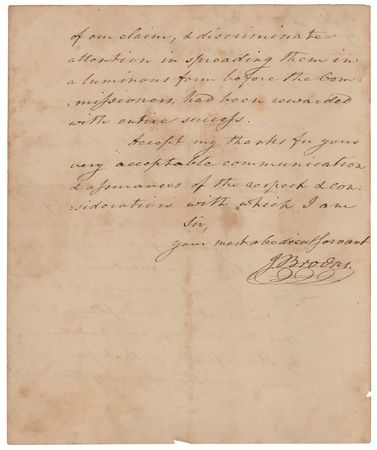 of our claim, & discriminate
attention in spreading them in
a luminous form before the Com-
-missioners, had been rewarded
with entire success.
Accept my thanks for your
very acceptable communication
& assurances of the respect & con-
-sideration with which I am
Sir,
your most obedient servant
J Brooks